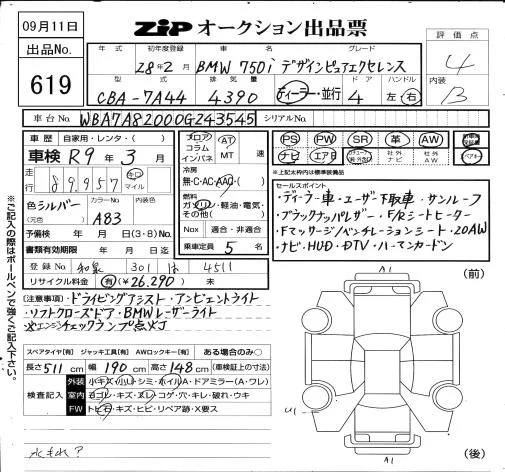 09月11日
ZIP オークション出品票
出品No.
619
評価点
4
内装
B
年式 初年度登録 車名 グレード
28年2月 BMW 750i デザインピュアエクセレンス
型式 排気量 ドア ハンドル
CBA-7A44 4390 ディーラー・並行 4 左 右
車台No. WBA7A82000G243545 シリアルNo.
車歴 自家用・レンタ・( )
車検 R9年3月
走行 89,957 キロ マイル
色 シルバー カラーNo. 内装色
(元色) A83
予備検 年 月 日(3・8)No.
書類有効期限 年 月 日
登録No. 和泉 301 4511
リサイクル料金 有(¥26,290) 未
フロア コラム インパネ AT MT 速
冷房
無・C・AC・AAC・( )
燃料
ガソリン・軽油・電気・その他( )
Nox 適合・非適合
乗車定員 5 名
PS PW SR 革 AW
ナビ エアB 社外ナビ 社外AW
※上記太枠内は標準装備品
セールスポイント
・ディーラー車・ユーザー下取車・サンルーフ
・ブラックナッパレザー・F/Rシートヒーター
・Fマッサージ/ベンチレーションシート・20AW
・ナビ・HUD・DTV・ハーマンカードン
注意事項・ドライビングアシスト・アンビエントライト
・ソフトクローズドア・BMWレーザーライト
※エンジンチェックランプ点灯
スペアタイヤ[有] ジャッキ工具[有] AWロックキー[有] ある場合のみ○
長さ511cm 幅190cm 高さ148cm (車検証上の寸法)
検査記入
外装 小キズ・小U・シミ・ホイルA・ドアミラー(A・ワレ)
室内 ヨゴレ・キズ・スレ・コゲ・穴・キレ・破れ・ウキ
FW トビ石・キズ・ヒビ・リペア跡・X要ス
水もれ?
※ご記入の際はボールペンで強くご記入下さい。
A1
(前)
U1
A1
(後)